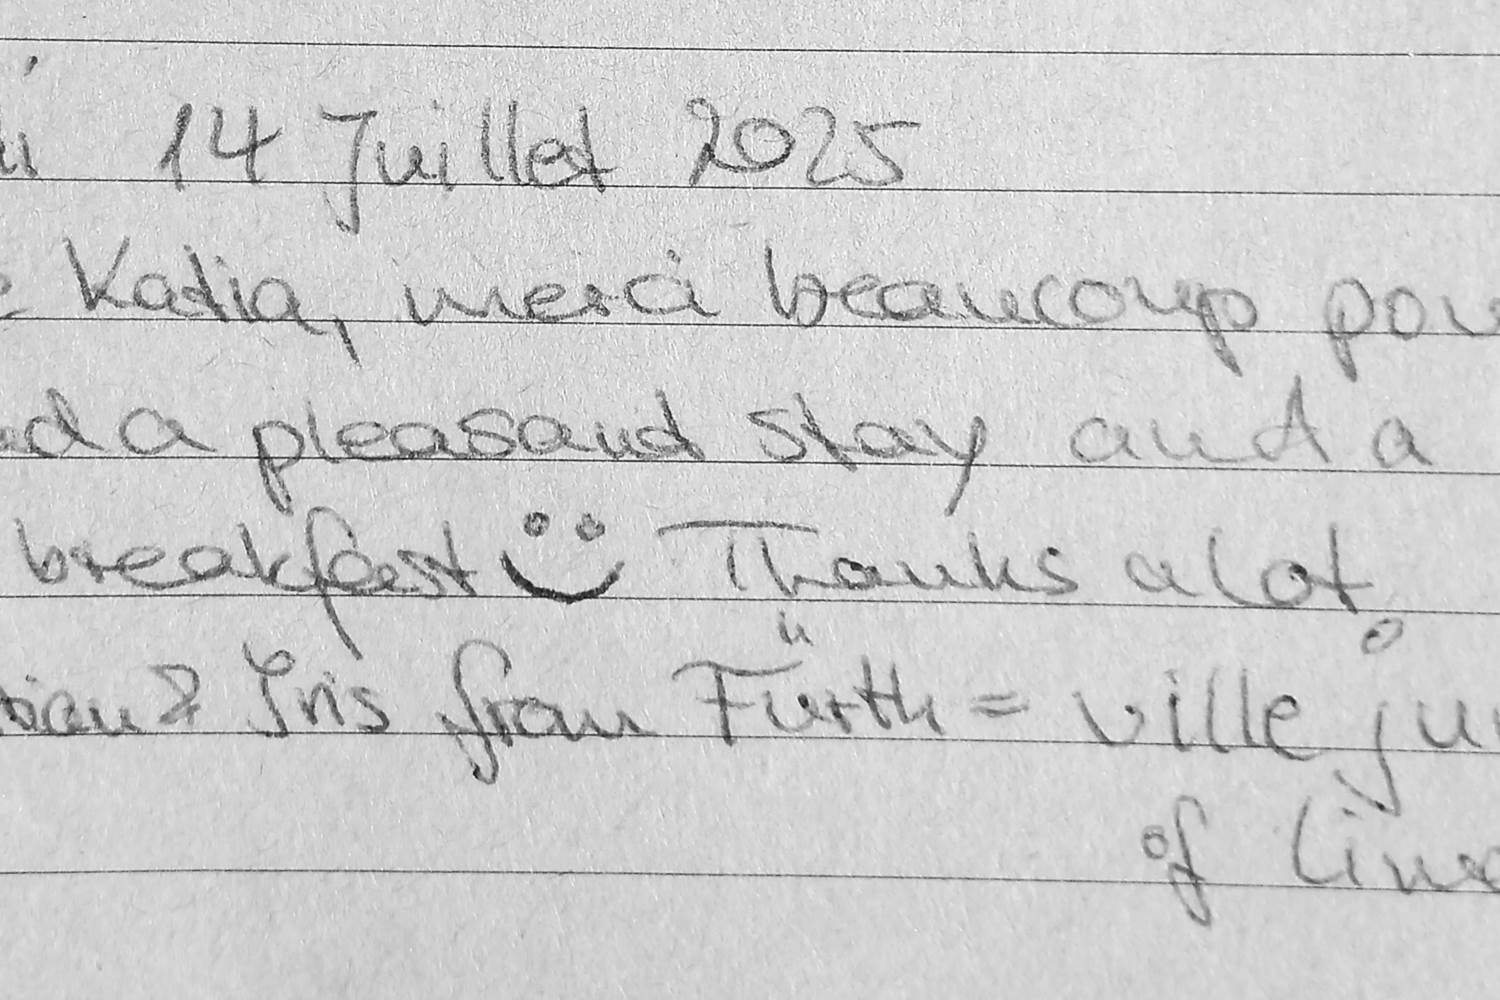 14 Juillet 2025
Katia, merci beaucoup pou
d a pleasand stay and a
breakfast Thanks a lot
& Iris from Fürth = ville ju
of Limo